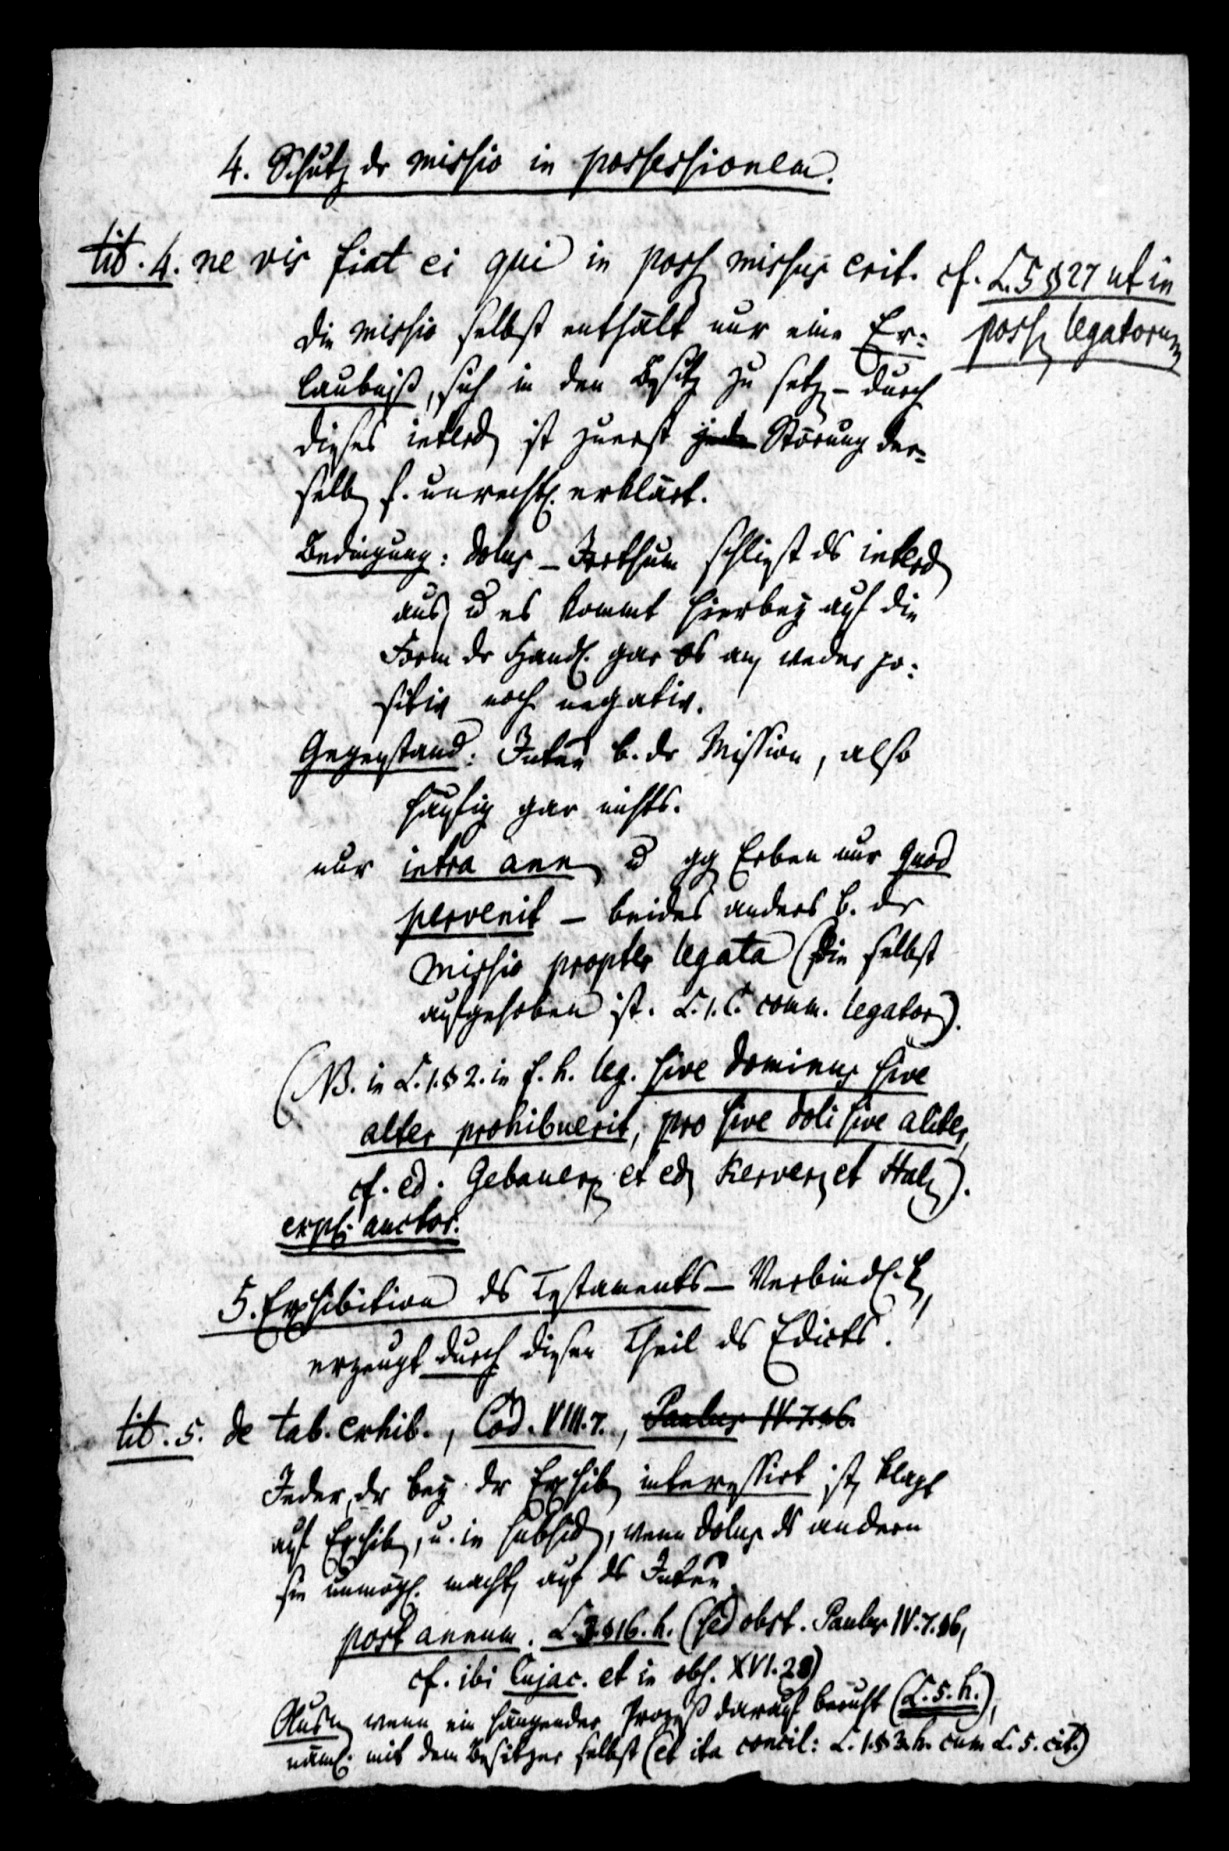 4. Schutz dr missio in possessionem.
tit. 4. ne vis fiat ei qui in poss. missus erit. cf. L. 5 §27 ut in
poss. legatorum
die missio selbst enthält nur eine Er=
laubniß, sich in den Besitz zu setz. – durch
dieses interd. ist zuerst jede Störung der=
selb. f. unrechtl. erklärt.
Bedingung: dolus – Irrthum schließt ds interd.
aus, u es kommt hierbey auf die
Form dr Handl. gar  an, weder po=
sitiv noch negativ.
Gegenstand: Interesse b. dr Mission, also
häufig gar nichts.
nur intra ann. u gg Erben nur quod
pervenit – beides anders b. dr
missio propter legata (die selbst
aufgehoben ist. L. 1. C. comm. legator.).
(NB. in L. 1. §2. in f. h. leg. sive dominus sive
alter prohibuerit, pro sive doli sive aliter,
cf. ed. Gebauer. et ed. Kerver. et Hal.).
expl. auctor.
5. Exhibition ds Testaments – Verbindl.k.,
erzeugt durch diesen Theil ds Edicts.
tit. 5. de tab. exhib., Cod. VIII. 7., Paulus IV. 7. §6.
Jeder, dr bey dr Exhib. interessirt ist, klagt
auf Exhib., u. in subsid., wenn dolus ds andern
sie unmögl. macht, auf ds Interesse
post annum. L. 3. §16. h. (sed obst. Paulus IV. 7. §6,
cf. ibi Cujac. et in obs. XVI. 28)
Ausn. wenn ein hängender Prozeß darauf beruht (L. 5. h.),
näml. mit dem Besitzer selbst (et ita concil: L. 1. §3. h. cum L. 5. cit.)